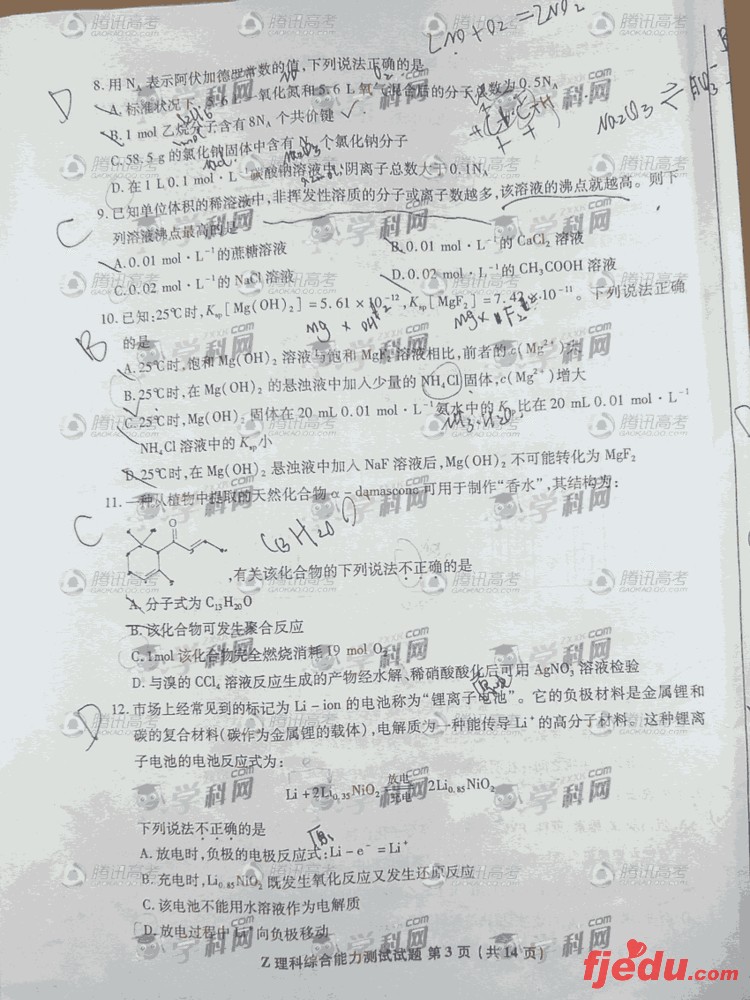 2NO+O2=2NO2
8.用 NA 表示阿伏加德罗常数的值,下列说法正确的是
D
A.标准状况下,5.6 L 一氧化氮和5.6 L 氧气混合后的分子总数为0.5NA
B.1 mol 乙烷分子含有8NA 个共价键
C.58.5 g 的氯化钠固体中含有NA 个氯化钠分子
D.在1 L 0.1 mol·L-1碳酸钠溶液中,阴离子总数大于0.1NA
9.已知单位体积的稀溶液中,非挥发性溶质的分子或离子数越多,该溶液的沸点就越高。则下
C
列溶液沸点最高的是
A.0.01 mol·L-1的蔗糖溶液 B.0.01 mol·L-1的 CaCl2 溶液
C.0.02 mol·L-1的 NaCl 溶液 D.0.02 mol·L-1的 CH3COOH 溶液
10.已知:25℃时,Ksp[Mg(OH)2]=5.61×10-12,Ksp[MgF2]=7.42×10-11。下列说法正确
B
的是
A.25℃时,饱和 Mg(OH)2 溶液与饱和 MgF2 溶液相比,前者的c(Mg2+)大
B.25℃时,在 Mg(OH)2 的悬浊液中加入少量的 NH4Cl 固体,c(Mg2+)增大
C.25℃时,Mg(OH)2 固体在20 mL 0.01 mol·L-1氨水中的Ksp比在20 mL 0.01 mol·L-1
NH3·H2O
NH4Cl 溶液中的Ksp小
D.25℃时,在 Mg(OH)2 悬浊液中加入 NaF 溶液后,Mg(OH)2 不可能转化为 MgF2
11.一种从植物中提取的天然化合物 α-damascone 可用于制作“香水”,其结构为:
C
O
C13H20O
,有关该化合物的下列说法不正确的是
A.分子式为 C13H20O
B.该化合物可发生聚合反应
C.1mol 该化合物完全燃烧消耗19 mol O2
D.与溴的 CCl4 溶液反应生成的产物经水解、稀硝酸酸化后可用 AgNO3 溶液检验
12.市场上经常见到的标记为 Li-ion 的电池称为“锂离子电池”。它的负极材料是金属锂和
D
碳的复合材料(碳作为金属锂的载体),电解质为一种能传导 Li+ 的高分子材料。这种锂离
子电池的电池反应式为:
Li+2Li0.35NiO2 放电 充电 2Li0.85NiO2
下列说法不正确的是
A.放电时,负极的电极反应式:Li-e-=Li+
B.充电时,Li0.85NiO2 既发生氧化反应又发生还原反应
C.该电池不能用水溶液作为电解质
D.放电过程中 Li+向负极移动
Z 理科综合能力测试试题 第 3 页(共 14 页)
fjedu.com